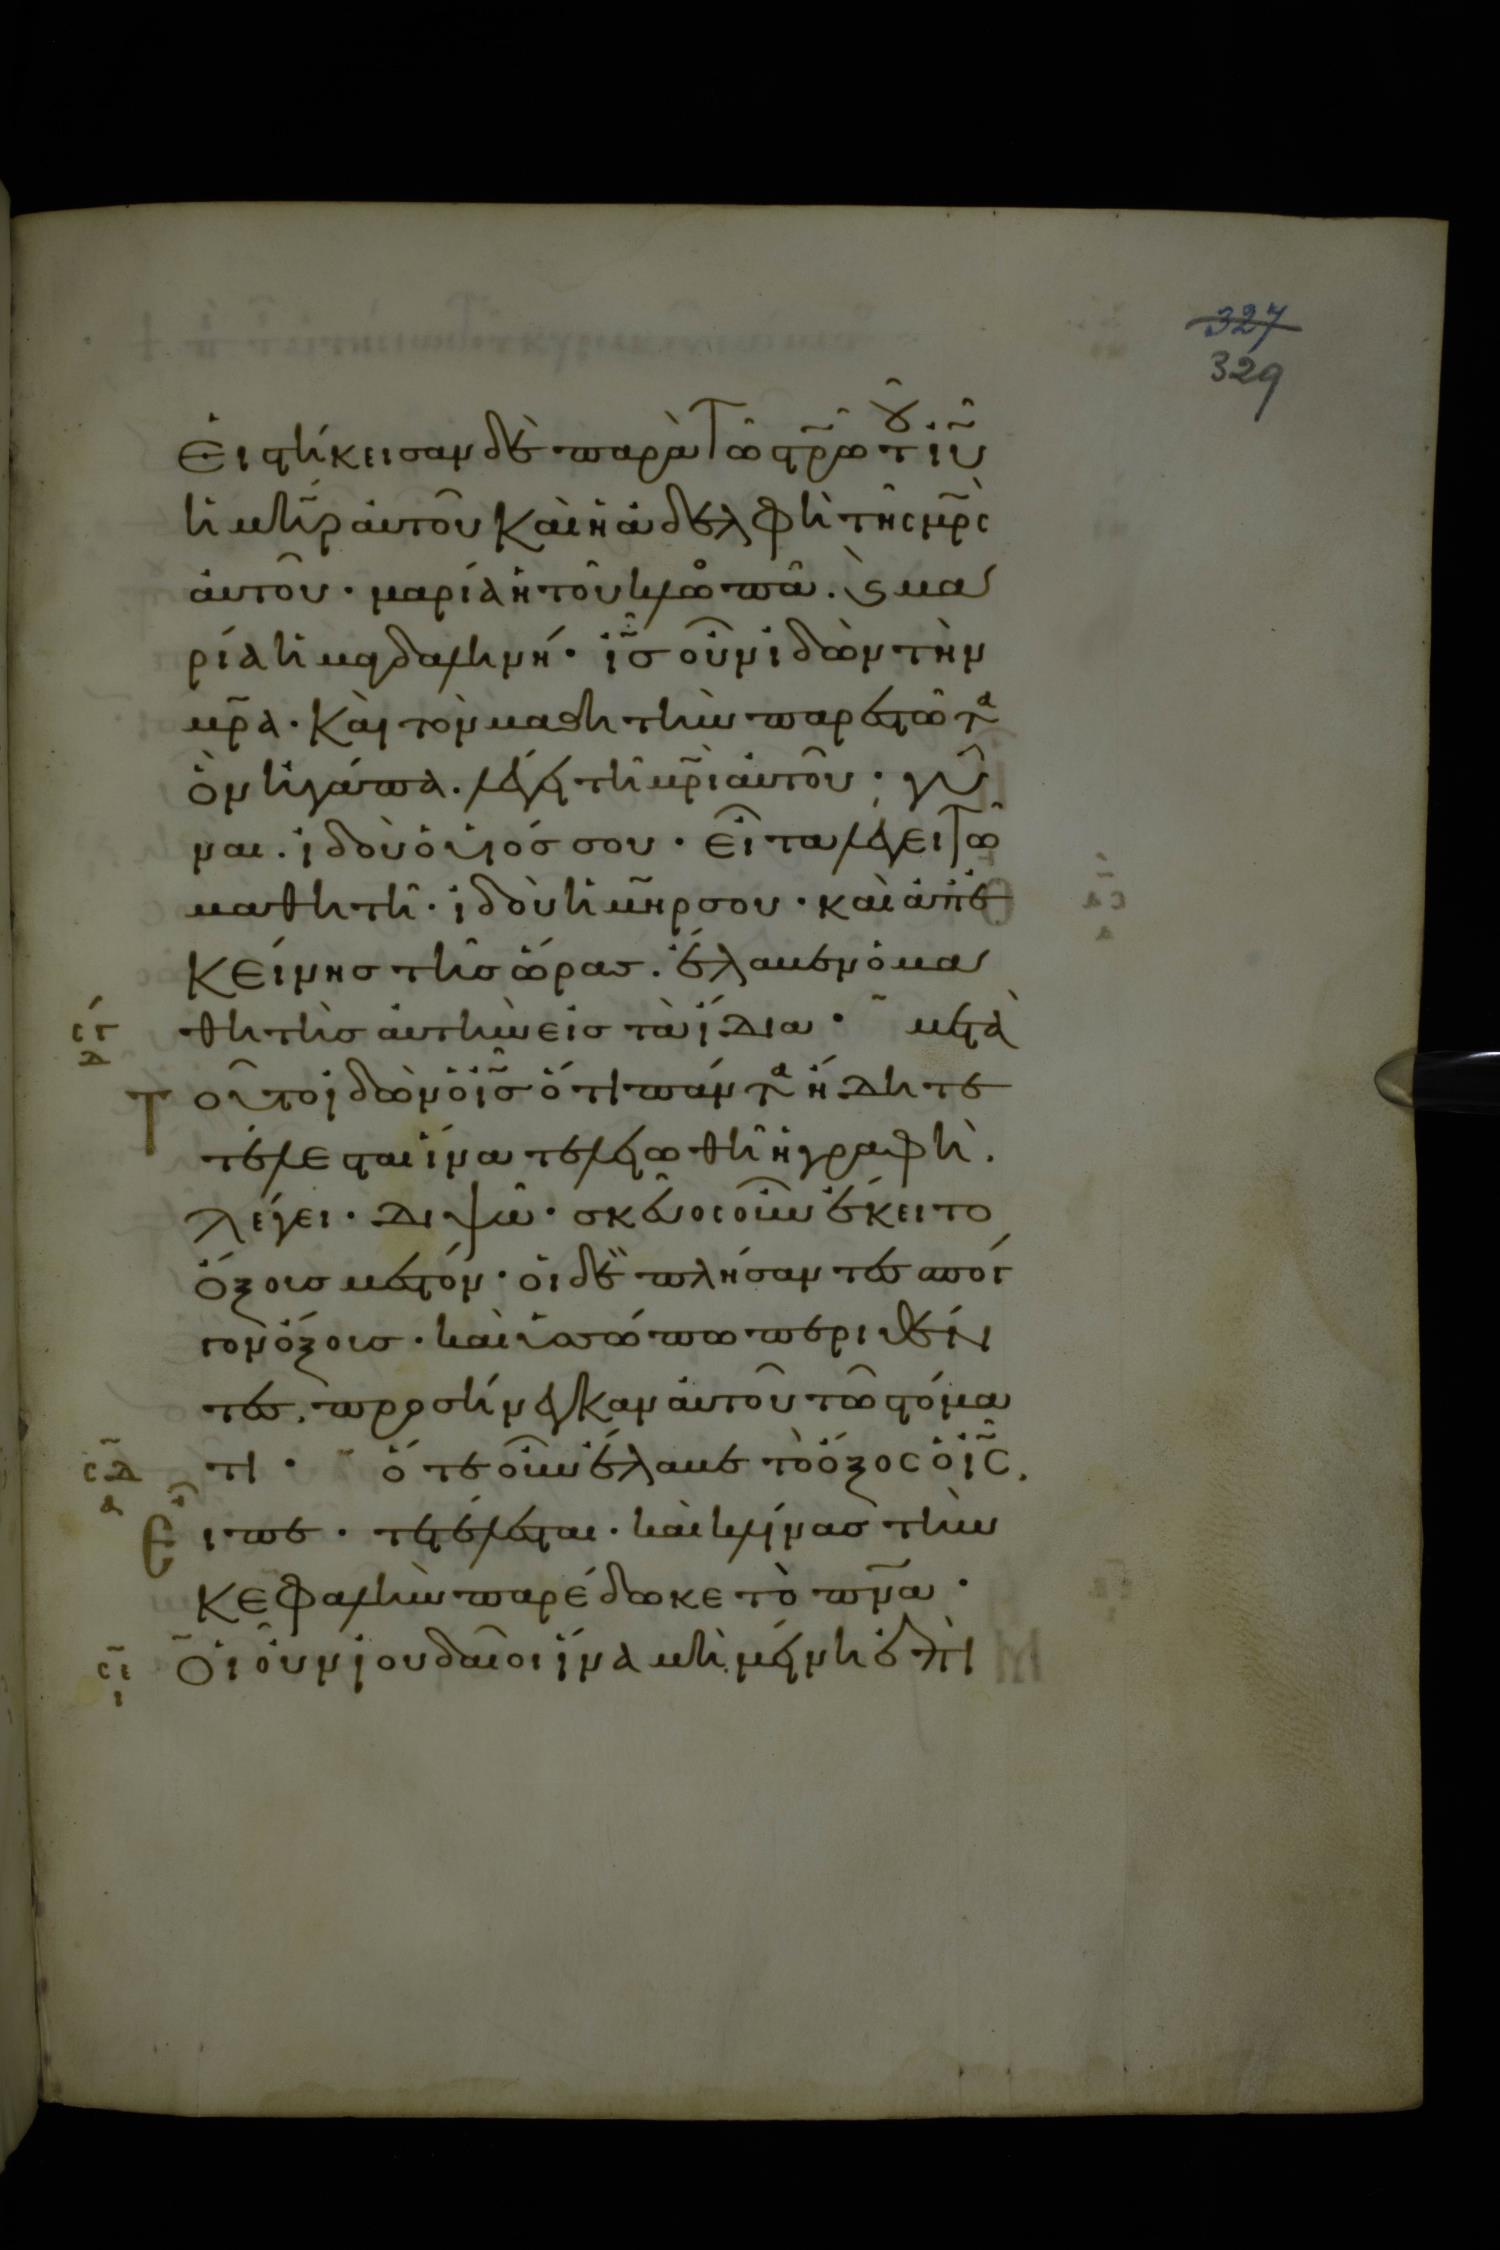 327
329
Εἱστήκεισαν δὲ παρὰ τῶ στρω τοῦ ιυ
ἡ μηρ αὐτοῦ καὶ ἡ ἀδελφὴ τῆς μρς
αὐτοῦ · μαρία ἡ τοῦ κλωπᾶ . ϗ μα
ρία ἡ μαγδαληνή · ις οὖν ἰδὼν τὴν
μρα · καὶ τὸν μαθητὴν παρεστῶτα
ὃν ἠγάπα . λέγει τῆ μρι αὐτοῦ · γύ
ναι . ἰδοὺ ὁ υἱός σου · εἶτα λέγει τῶ
μαθητῆ · ἰδοὺ ἡ μηρ σου · καὶ ἀπ' ἐ
κείνης τῆς ὥρας . ἔλαβεν ὁ μα
σγ
δ
θητὴς αὐτὴν εἰς τὰ ἴδια · μετὰ
τοῦτο ἰδὼν ὁ ις ὅτι πάντα ἤδη τε
τέλεσται ἵνα τελειωθῆ ἡ γραφὴ .
λέγει · διψῶ · σκεῦος οὖν ἔκειτο
ὄξους μεστόν · οἱ δὲ πλήσαντες σπόγ
γον ὄξους · καὶ ὑσσώπω περιθέν
τες . προσήνεγκαν αὐτοῦ τῶ στόμα
σδ
α
τι · ὅτε οὖν ἔλαβε τὸ ὄξος ὁ ις .
εἶπε · τετέλεσται · καὶ κλίνας τὴν
κεφαλὴν παρέδωκε τὸ πνα ·
σε
ι
Οἱ οὖν ἰουδαῖοι ἵνα μὴ μείνη ἐπὶ